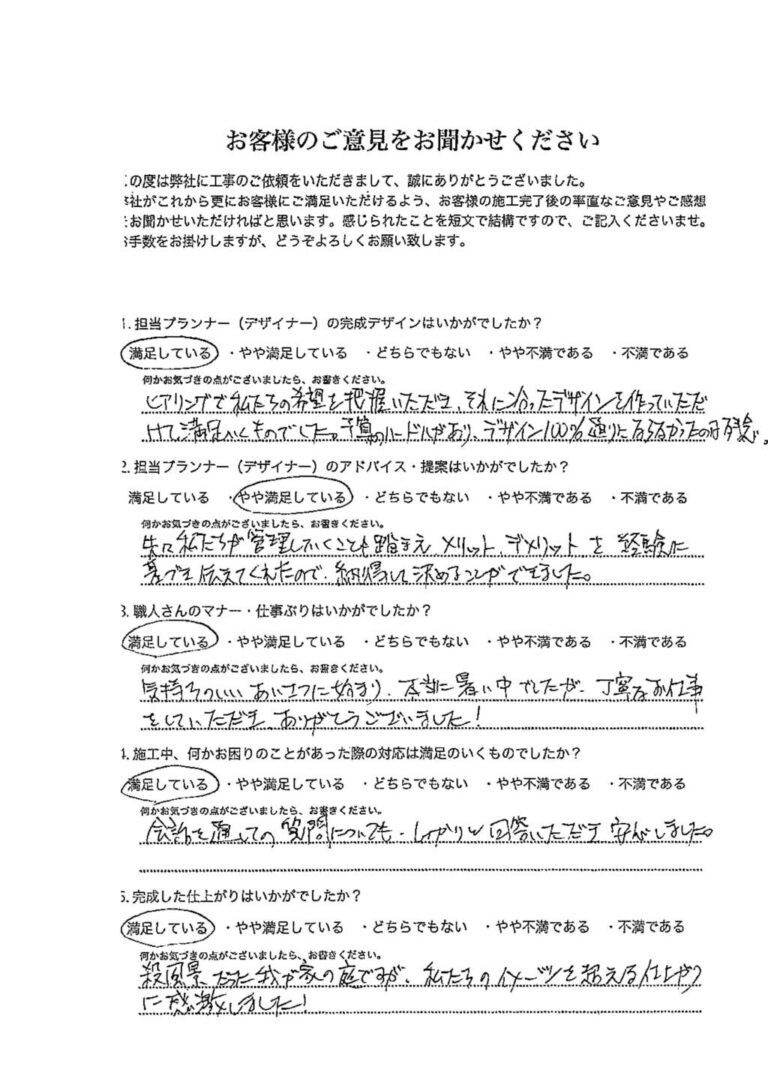 お客様のご意見をお聞かせください
の度は弊社に工事のご依頼をいただきまして、誠にありがとうございました。
社がこれから更にお客様にご満足いただけるよう、お客様の施工完了後の率直なご意見やご感想
お聞かせいただければと思います。感じられたことを短文で結構ですので、ご記入くださいませ。
手数をお掛けしますが、どうぞよろしくお願い致します。
1. 担当プランナー(デザイナー)の完成デザインはいかがでしたか?
満足している ・やや満足している ・どちらでもない ・やや不満である ・不満である
何かお気づきの点がございましたら、お書きください。
ヒアリングで私たちの希望を把握いただき、それに沿ったデザインを作っていただ
けて満足いくものでした。予算のハードルがあり、デザイン100%通りにならなかったのが残念。
2. 担当プランナー(デザイナー)のアドバイス・提案はいかがでしたか?
満足している ・やや満足している ・どちらでもない ・やや不満である ・不満である
何かお気づきの点がございましたら、お書きください。
先々私たちが管理していくことも踏まえ メリット、デメリット を 経験に
基づき伝えてくれたので、納得して決めることができました。
3. 職人さんのマナー・仕事ぶりはいかがでしたか?
満足している ・やや満足している ・どちらでもない ・やや不満である ・不満である
何かお気づきの点がございましたら、お書きください。
気持ちのいいあいさつに始まり、本当に暑い中でしたが、丁寧なお仕事
をしていただき ありがとうございました!
4. 施工中、何かお困りのことがあった際の対応は満足のいくものでしたか?
満足している ・やや満足している ・どちらでもない ・やや不満である ・不満である
何かお気づきの点がございましたら、お書きください。
会話を通しての質問についても、しっかりと回答いただき安心しました。
5. 完成した仕上がりはいかがでしたか?
満足している ・やや満足している ・どちらでもない ・やや不満である ・不満である
何かお気づきの点がございましたら、お書きください。
殺風景だった我が家の庭ですが、私たちのイメージを超える仕上がり
に感激しました!